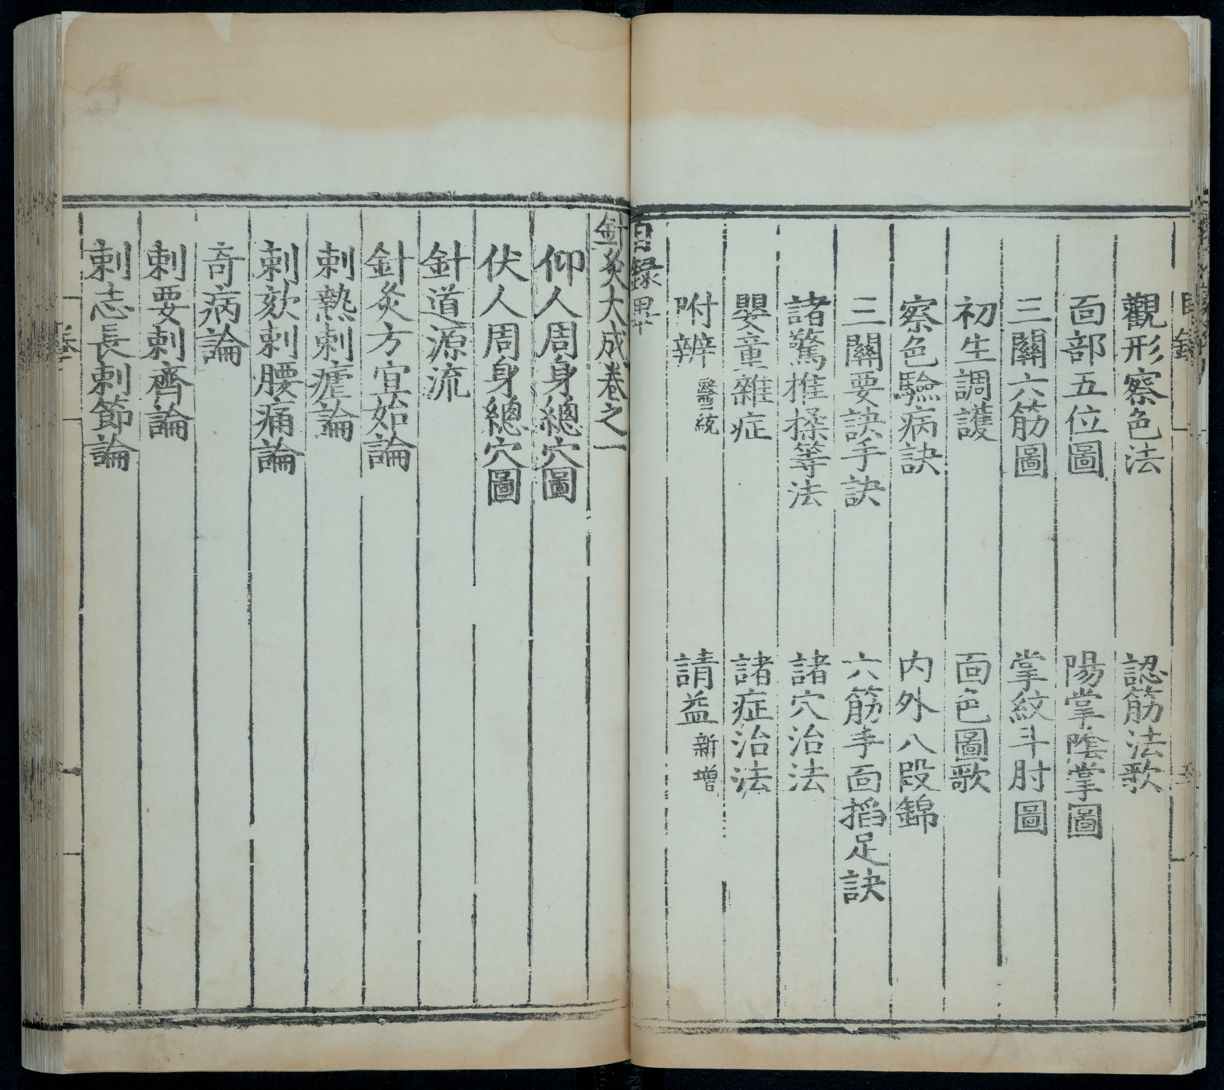 觀形察色法　認筋法歌
面部五位圖　陽掌陰掌圖
三關六筋圖　掌紋斗肘圖
初生調護　面色圖歌
察色驗病訣　内外八段錦
三關要訣手訣　六筋手面掐足訣
諸驚推揉等法　諸穴治法
嬰童雜症　諸症治法
附辨醫統　請益新增
目録畢
針灸大成卷之一
仰人周身總穴圖
伏人周身總穴圖
針道源流
針灸方宜始論
刺熱刺瘧論
刺欬刺腰痛論
奇病論
刺要刺齊論
刺志長刺節論